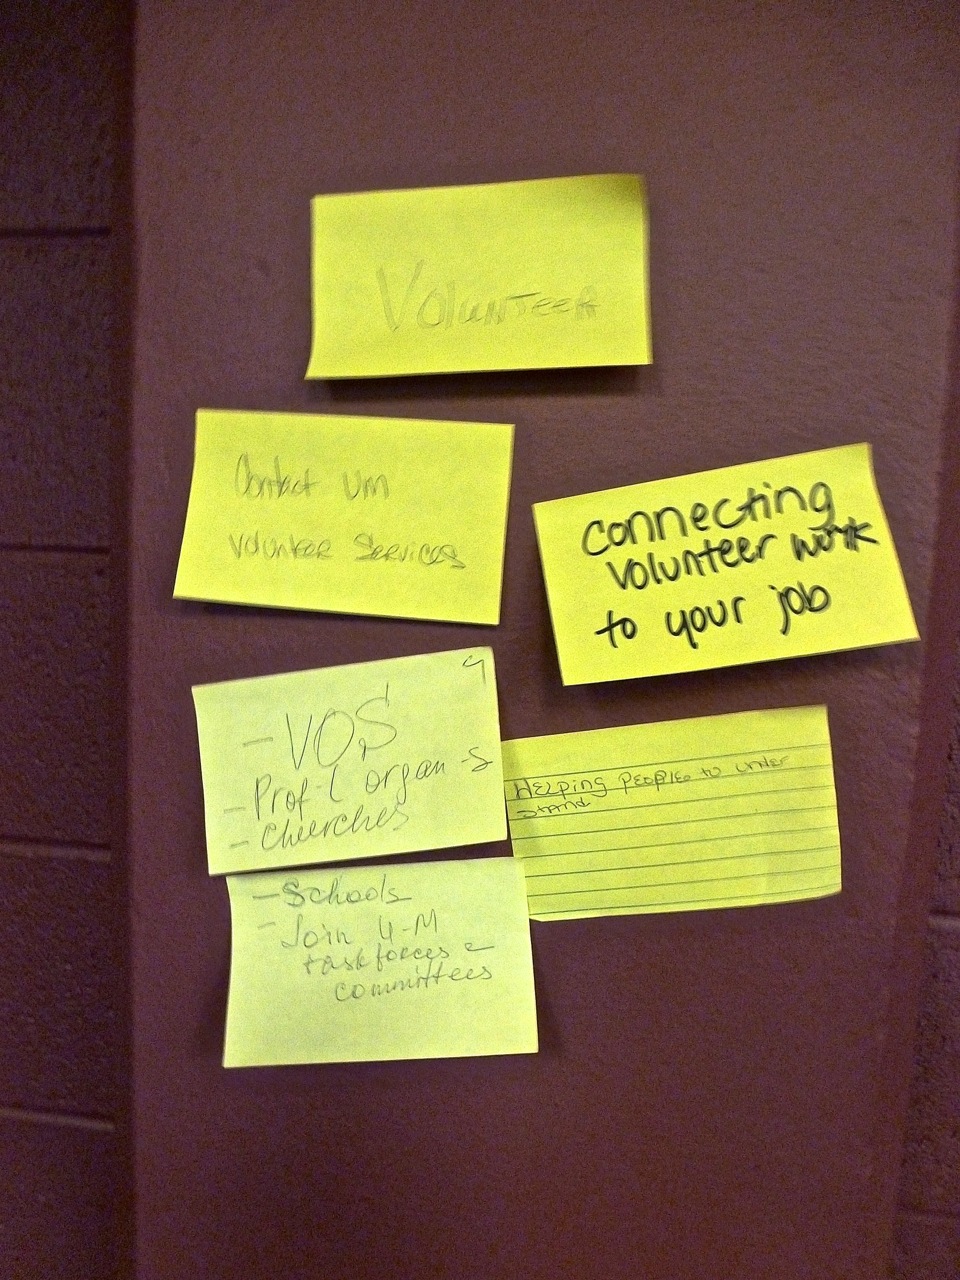 Volunteer
Contact UM
Volunteer Services
connecting
volunteer work
to your job
9
- VOS
- Prof-l organ-s
- Churches
Helping People to under
stand
- Schools
- Join U-M
taskforces &
committees